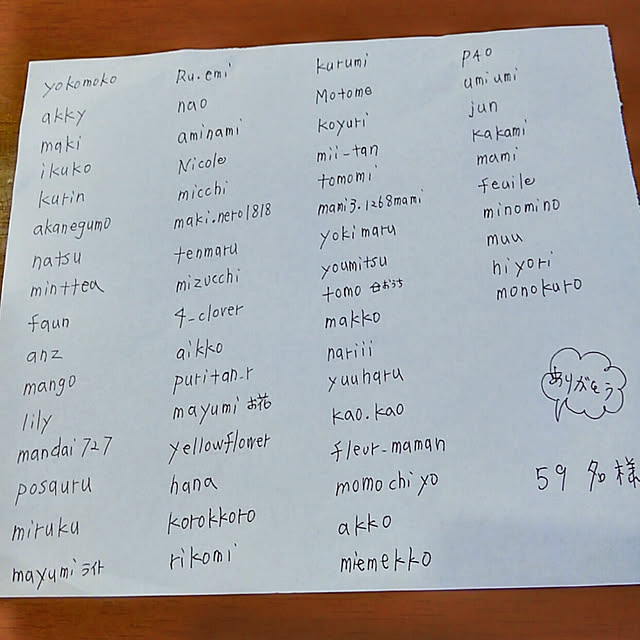 yokomoko
akky
maki
ikuko
kurin
akanegumo
natsu
minttea
faun
anz
mango
lily
mandai727
posauru
miruku
mayumi ライト
Ru.emi
nao
aminami
Nicole
micchi
maki.nero1818
tenmaru
mizucchi
4_clover
aikko
puritan_r
mayumi お花
yellowflower
hana
korokkoro
rikomi
kurumi
Motome
koyuri
mii-tan
tomomi
mami3.1268mami
yokimaru
youmitsu
tomo 白おうち
makko
nariii
yuuharu
kao.kao
fleur_maman
momochiyo
akko
miemekko
pao
umiumi
jun
kakami
mami
feuile
minomino
muu
hiyori
monokuro
ありがとう
59名様